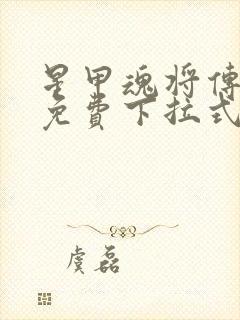 星甲魂将傳
免費下拉式
虞磊